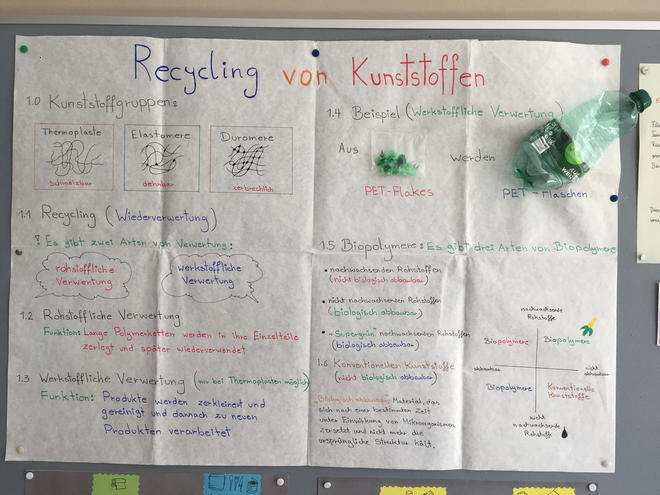 Recycling von Kunststoffen
1.0 Kunststoffgruppen:
Thermoplaste
schmelzbar
Elastomere
dehnbar
Duromere
zerbrechlich
1.1 Recycling (Wiederverwertung)
! Es gibt zwei Arten von Verwertung:
rohstoffliche
Verwertung
werkstoffliche
Verwertung
1.2 Rohstoffliche Verwertung
Funktion: Lange Polymerketten werden in ihre Einzelteile
zerlegt und später wiederverwendet
1.3 Werkstoffliche Verwertung (nur bei Thermoplasten möglich)
Funktion: Produkte werden zerkleinert und
gereinigt und dannach zu neuen
Produkten verarbeitet
1.4 Beispiel (Werkstoffliche Verwertung)
Aus
werden
PET-Flakes
PET-Flaschen
1.5 Biopolymere: Es gibt drei Arten von Biopolymere
• nachwachsenden Rohstoffen
(nicht biologisch abbaubar)
• nicht nachwachsenden Rohstoffen
(biologisch abbaubar)
• "Supergrün" nachwachsenden Rohstoffen
(biologisch abbaubar)
1.6 Konventionellen Kunststoffe
(nicht biologisch abbaubar)
Biologisch abbaubar: Material, das
sich nach einer bestimmten Zeit
unter Einwirkung von Mikroorganismen
zersetzt und nicht mehr die
ursprüngliche Struktur hält.
nachwachsende
Rohstoffe
Biopolymere
Biopolymere
abbaubar
nicht
abbaubar
Biopolymere
Konventionelle
Kunststoffe
nicht
nachwachsende
Rohstoffe